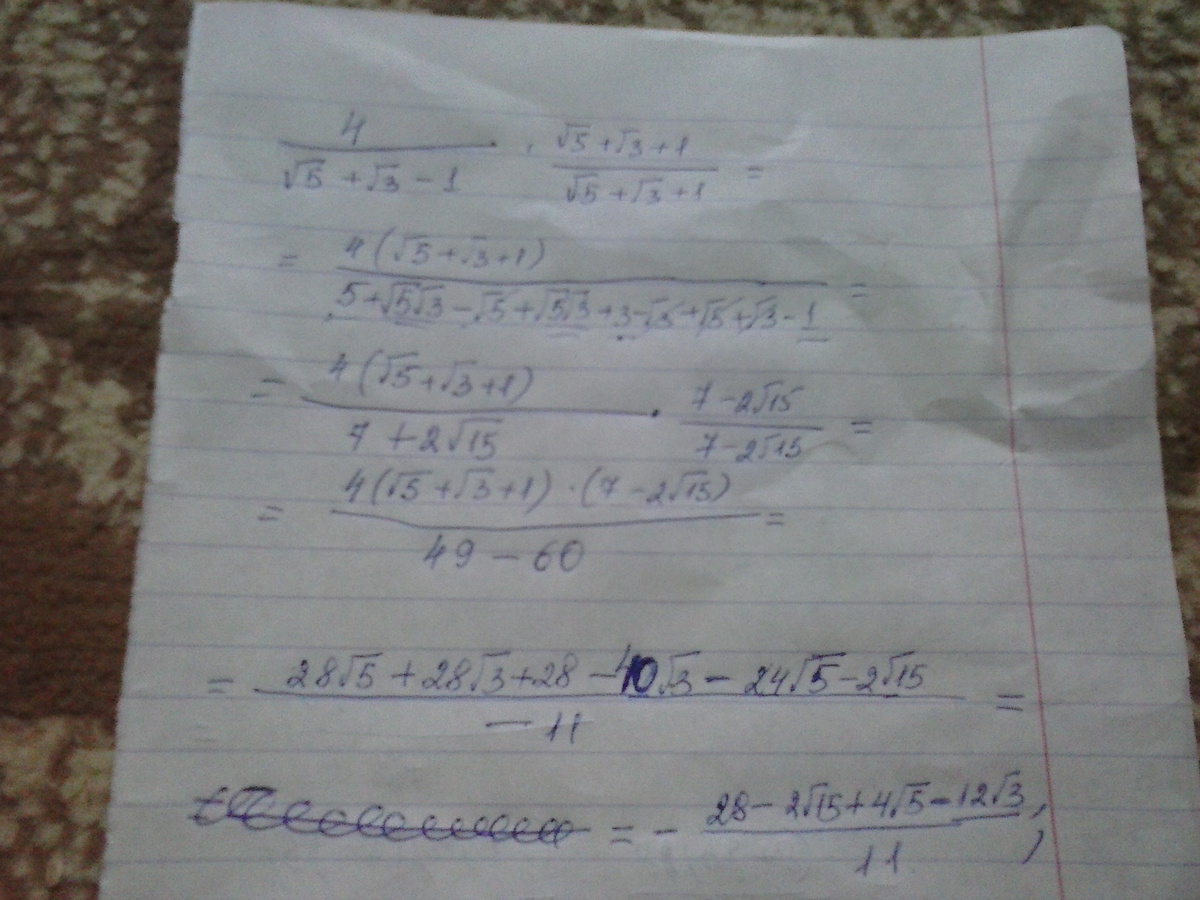 4 / (√5 + √3 - 1) · (√5 + √3 + 1) / (√5 + √3 + 1) =
= 4(√5 + √3 + 1) / (5 + √5√3 - √5 + √5√3 + 3 - √3 + √5 + √3 - 1) =
= 4(√5 + √3 + 1) / (7 + 2√15) · (7 - 2√15) / (7 - 2√15) =
= 4(√5 + √3 + 1) · (7 - 2√15) / (49 - 60) =
= (28√5 + 28√3 + 28 - 40√3 - 24√5 - 2√15) / (-11) =
= - (28 - 2√15 + 4√5 - 12√3) / 11;